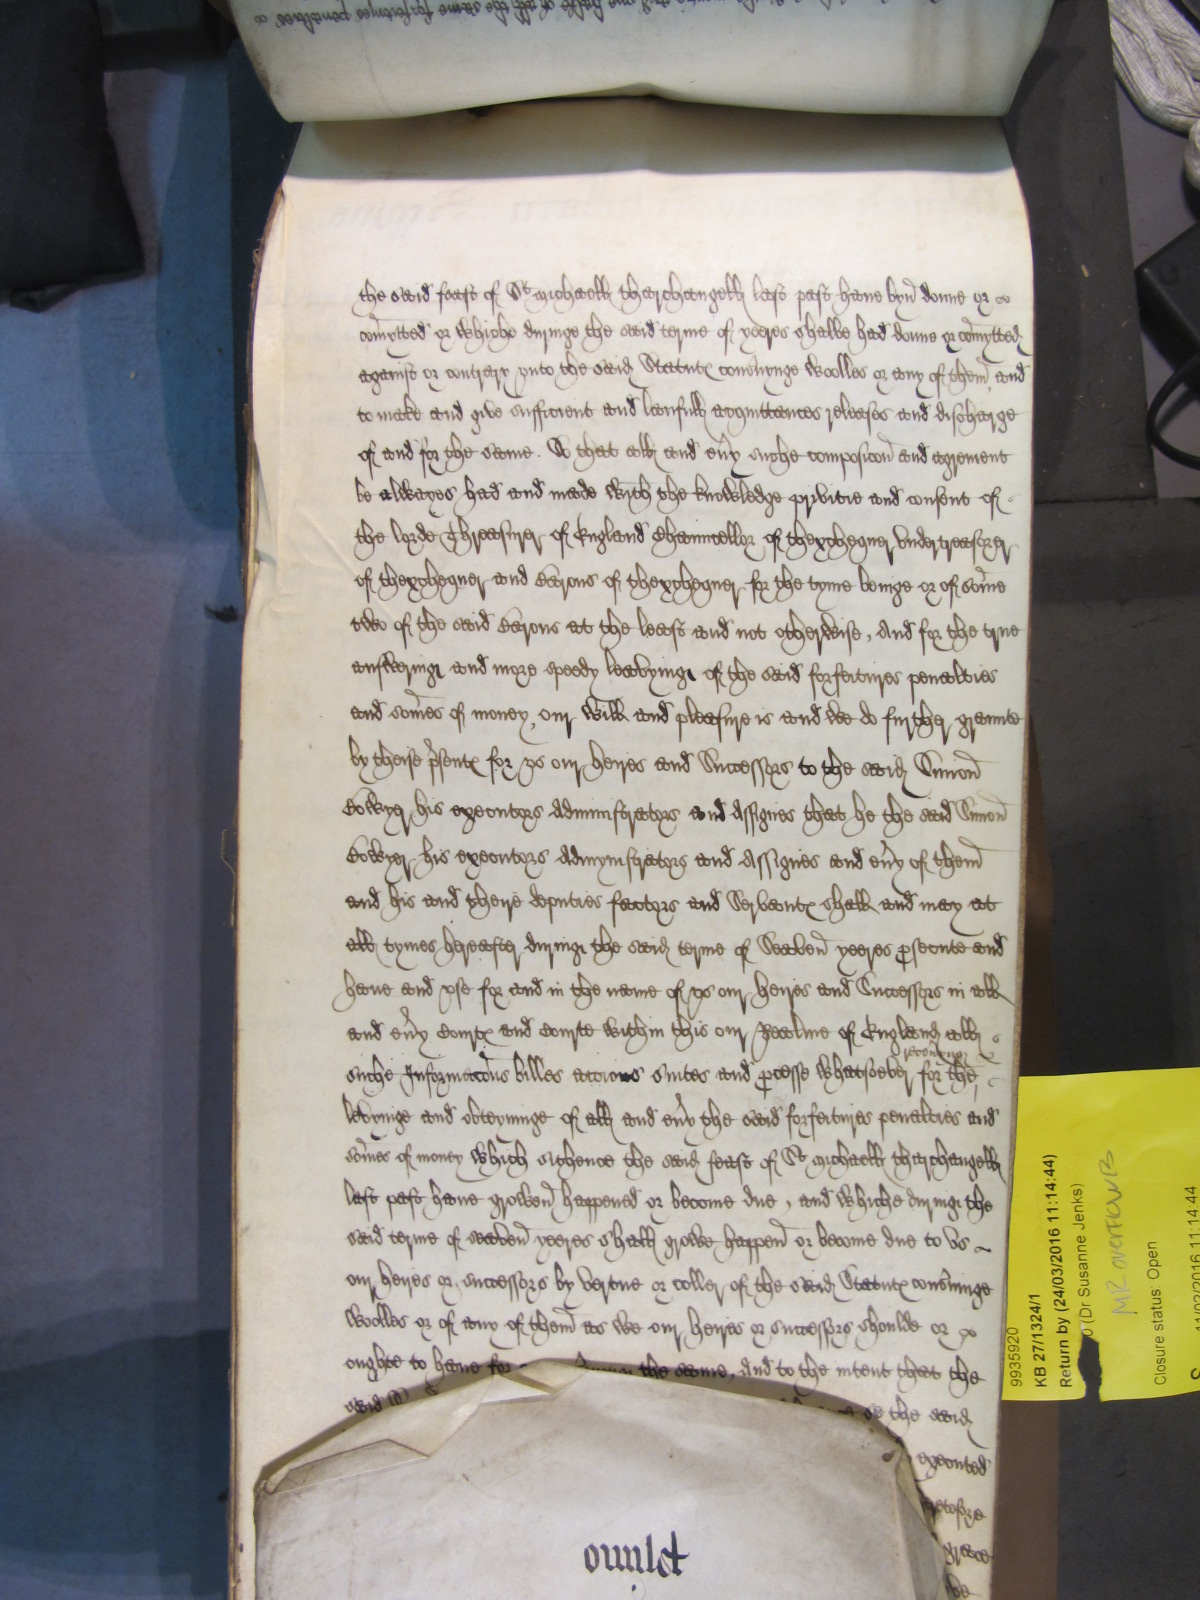 the said feast of St Michaell tharchangell last past have byn donne or
comytted or whiche duringe the said terme of yeeres shalbe had donne or comytted
against or contrary unto the said Statute concerninge Woolles or any of them, and
to make and give sufficient and laufull acquittances releases and discharge
of and for the same. So that all and eny suche composicon and agrement
be alwayes had and made with the knowledge privitie and consent of
the lorde Threasurer of England Chauncellor of thexchequer Undertreasorer
of thexchequer and Barons of thexchequer for the tyme beinge or of some
two of the said Barons at the least and not otherwise, And for the true
answeringe and more speedy leavyinge of the said forfeitures penalties
and somes of money, our Will and pleasure is and we do further graunte
by theise psente for us our heires and Successors to the said Simon
Bowyer his executors Administrators and Assignes that he the said Simon
Bowyer his executors Admynistrators and Assignes and evy of them
and his and theire deputies factors and Servante shall and may at
all tymes hereafter duringe the said terme of Seaven yeeres psecute and
have and use for and in the name of us our heires and Successors in all
and evy Courte and Courte within this our Realme of England all
suche Informacons billes accions suites and pcesse whatsoever for the
recovering
levyinge and obteyninge of all and evy the said forfeitures penalties and
somes of money which sithence the said feast of St Michaell tharchangell
last past have growen happened or become due, and whiche duringe the
said terme of seaven yeeres shall growe happen or become due to us
our heires or successors by vertue or coller of the said Statute concerninge
Woolles or of any of them as we our heires or successors shoulde or
oughte to have for the same, And to the intent that the
said the said
executed
heretofore
grace
be
primo
9935920
KB 27/1324/1
Return by (24/03/2016 11:14:44)
(Dr Susanne Jenks)
MR overtown B
Closure status: Open
11/02/2016 11:14:44